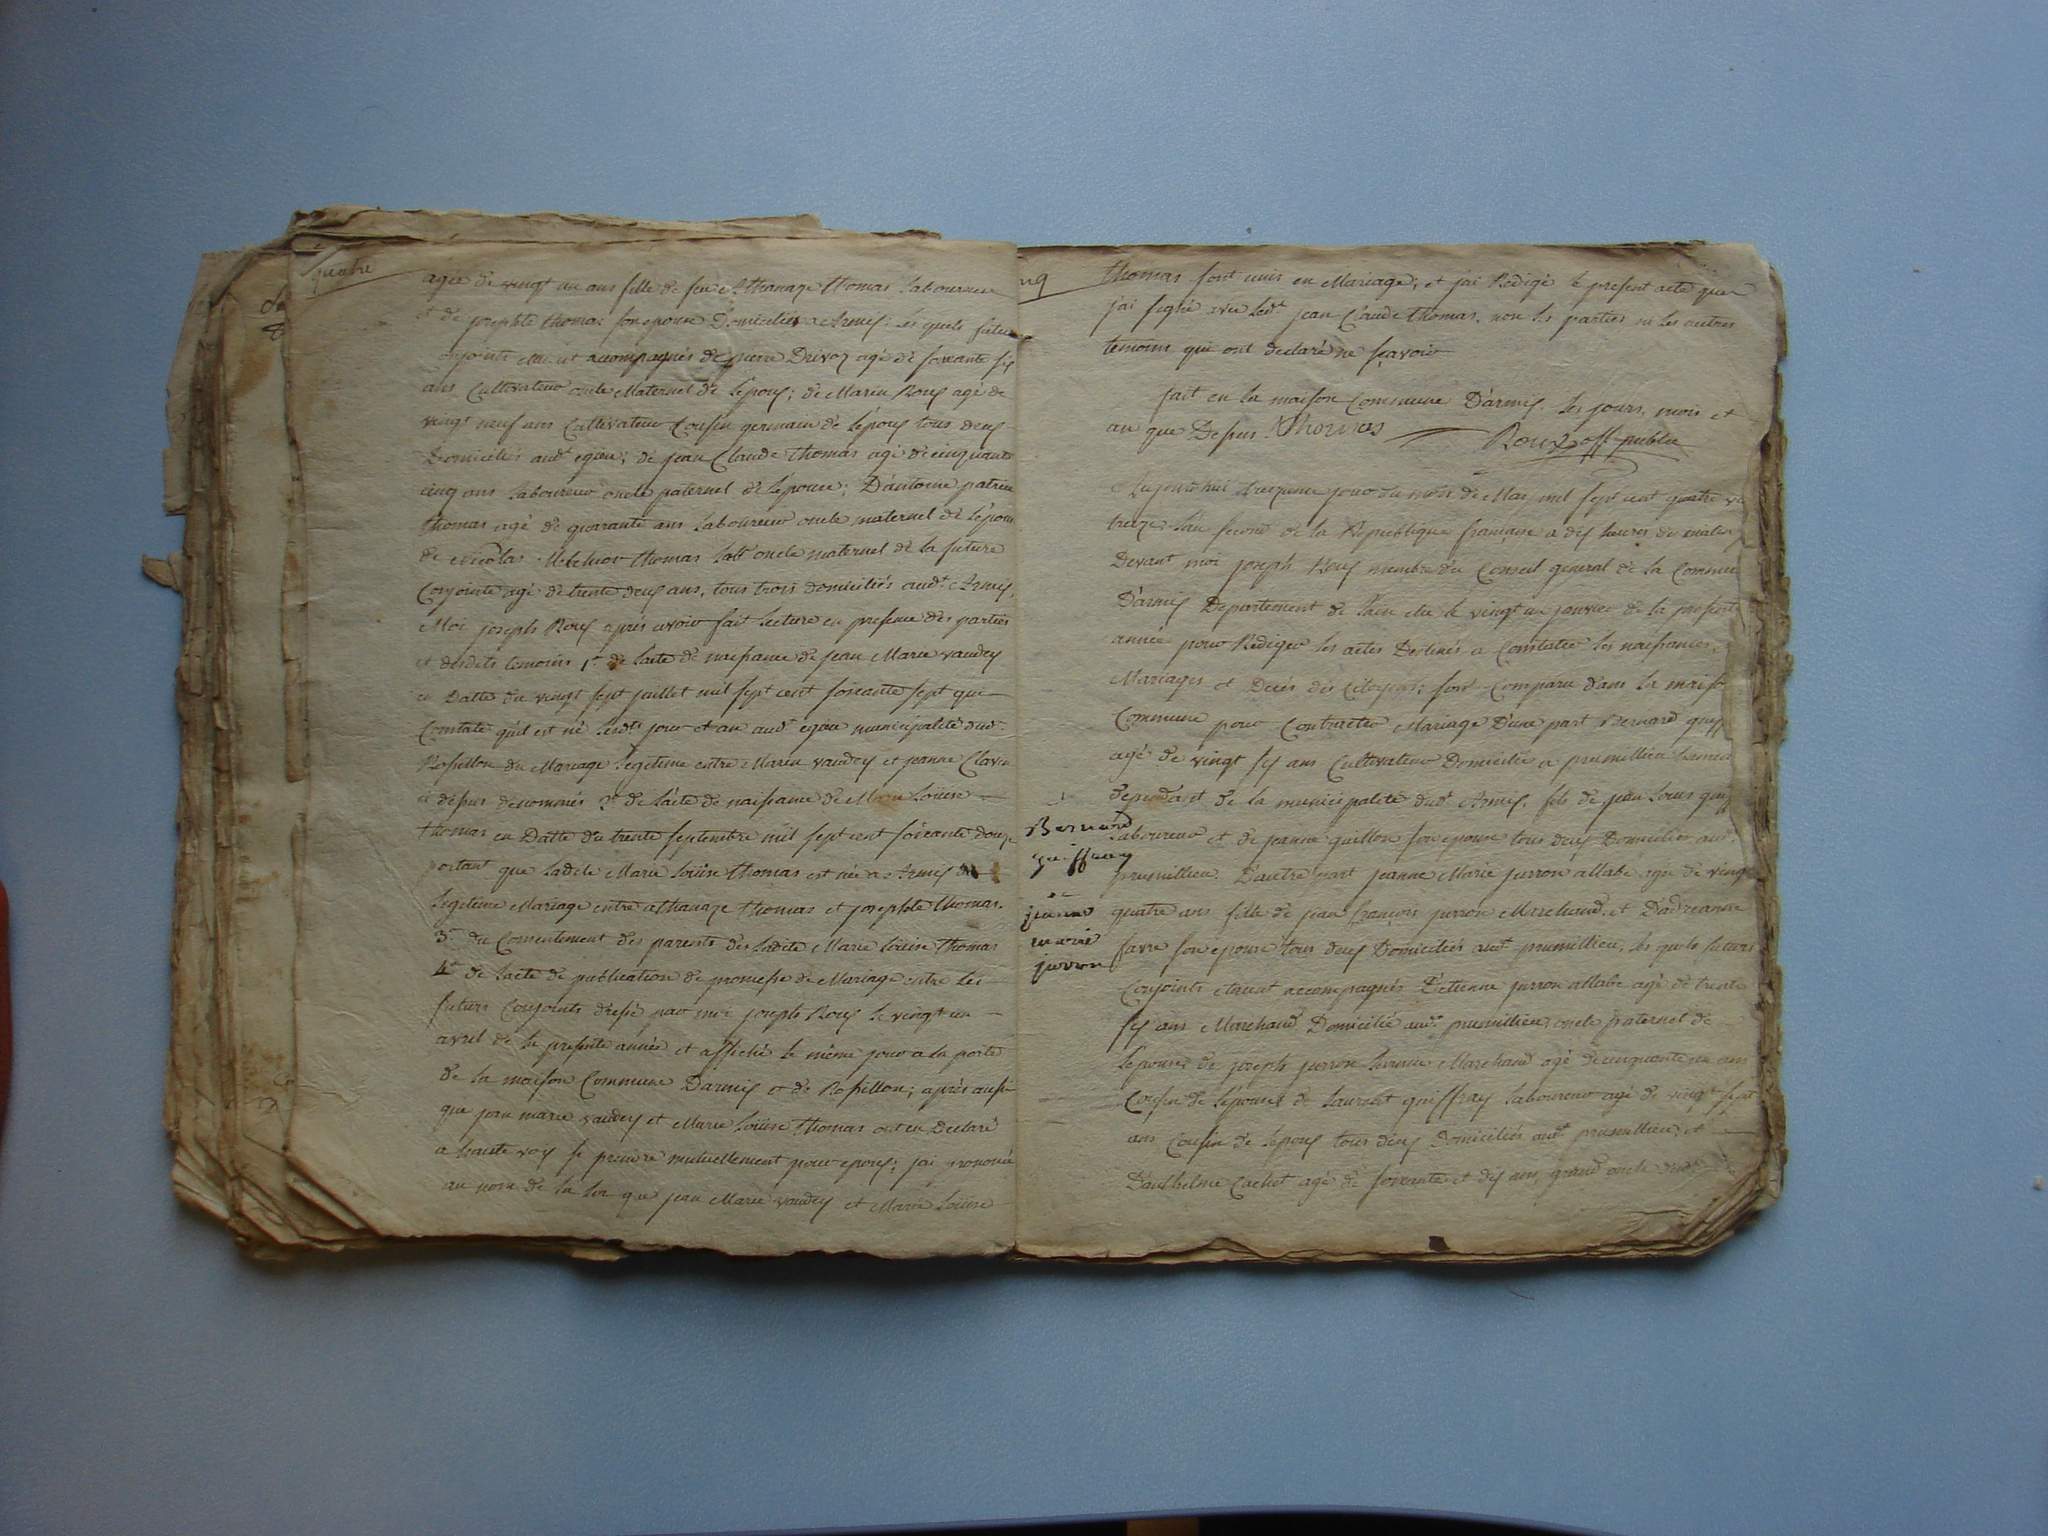 quatre
agée de vingt un ans fille de feu Athanaze thomas Laboureur
et de josephte thomas son epouse Domiciliés a Armix; les quels futurs
conjoints etaient acompagnés de pierre Drivoz agé de soixante six
ans Cultivateur oncle Maternel de L'époux; de Marin Roux agé de
vingt neuf ans Cultivateur Cousin germain de L'époux tous deux
Domiciliés audt egieu; de jean Claude thomas agé de cinquante
cinq ans Laboureur oncle paternel de L'epouse; D'antoine patrice
thomas agé de quarante ans Laboureur oncle maternel de L'épouse
de Nicolas Melchior thomas Labr oncle maternel de la future
Conjointe agé de trente deux ans, tous trois domiciliés audt Armix,
Moi joseph Roux après avoir fait Lecture en presence des parties
et desdits temoins 1° de Lacte de naissance de jean Marie vaudey
en Datte du vingt sept juillet mil sept cent soixante sept qui
Constate qu'il est né Lesdts jour et an audt egieu municipalité dudt
Rossillon du Mariage Legitime entre Marin vaudey et jeanne Clavin
ci dessus denommés 2° de L'acte de naissance de Marie Loüise
thomas en Datte du trente septembre mil sept cent soixante douze
portant que Ladite Marie Loüise thomas est née a Armix du
Legitime Mariage entre athanaze thomas et josephte thomas.
3° du Consentement des parents de Ladite Marie Loüise thomas
4° de Lacte de publication de promesse de Mariage entre les
futurs Conjoints dressé par moi joseph Roux Le vingt un
avril de la presente année et affiché le même jour a la porte
de la maison Commune D'armix et de Rossillon; après aussi
que jean marie vaudey et Marie Loüise thomas ont eu Declaré
a haute voix se prendre mutuellement pour epoux; j'ai prononcé
au nom de la loi que jean Marie vaudey et Marie Loüise
thomas sont unis en Mariage; et j'ai Redigé le present acte que
j'ai signé avec Ledt jean Claude thomas, non les parties ni les autres
temoins qui ont declaré ne sçavoir
fait en la maison Commune D'armix. Les jours, mois et
an que Dessus. Thomas
Roux off. public
Aujourdhui treizieme jour du mois de Mai mil sept cent quatre
treize L'an second de la Republique française a dix heures du matin
Devant moi joseph Roux membre du Conseil general de la Commune
D'armix Departement de Lain elu le vingt un janvier de la presente
année pour Rediger les actes Destinés a Constater les naissances,
Mariages et Decès des Citoyens; sont Comparu dans la maison
Commune pour Contracter Mariage D'une part Bernard
agé de vingt six ans Cultivateur Domicilié a prumillieu hameau
dependant de la municipalité dudt Armix, fils de jean Louis
Laboureur et de jeanne guillon son epouse tous deux Domiciliés audt
prumillieu. D'autre part jeanne Marie jurron allabe agée de vingt
quatre ans fille de jean françois jurron Marchand, et D'adrianne
favre son epouse tous deux Domiciliés audt prumillieu, les quels futurs
Conjoints etaient accompagnés D'etienne jurron allabe agé de trente
six ans Marchand Domicilié audt prumillieu oncle paternel de
Lepouse, de joseph jurron Marchand agé de cinquante un ans
Cousin de L'epouse, de Laurent quiffray Laboureur agé de vingt sept
ans Cousin de L'epoux tous deux Domiciliés audt prumillieu, et
D'anthelme Cachet agé de soixante et dix ans, grand oncle
Bernard
quiffray
et
jeanne
marie
jurron